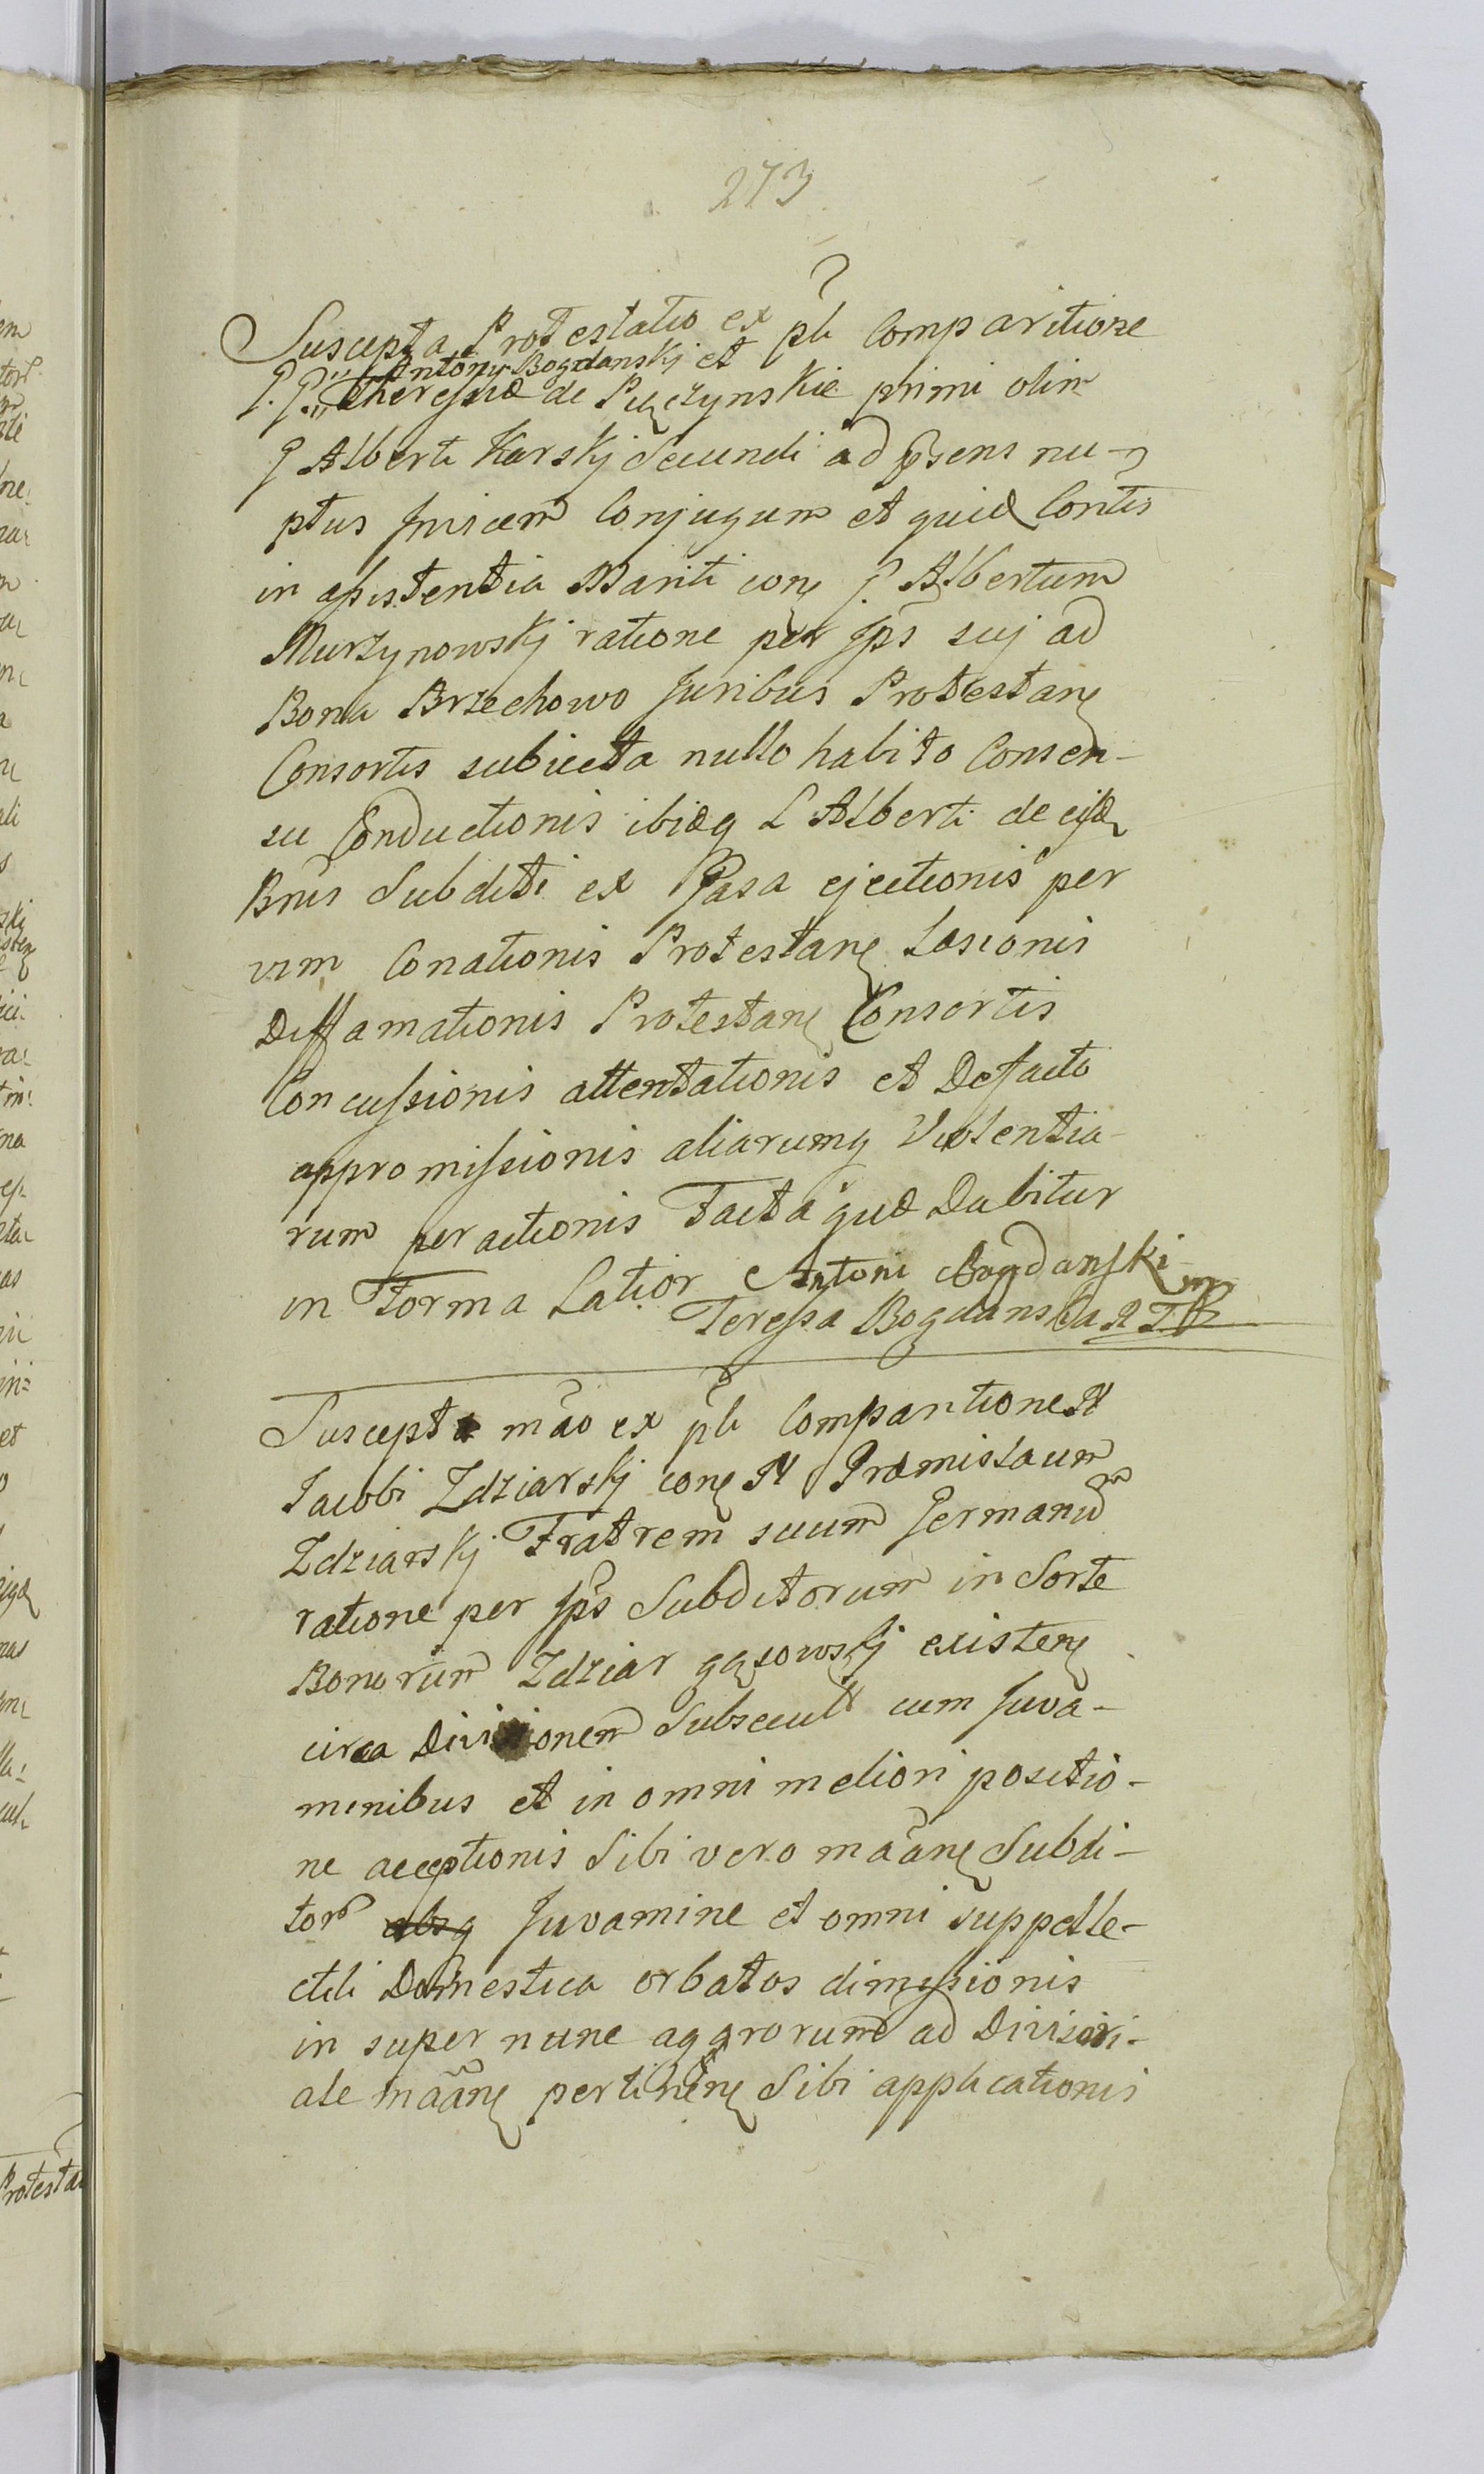 273
Suscepta Protestatio ex pli Comparitione
Antonij Bogdanskj et
P. G. Theressiæ de Puczynskie primi olim
G Alberti Karskj Secundi ad psens nu-
ptus Invicem Conjugum et quid Contis
in assistentia Mariti con G. Albertum
Murzynowskj ratione per Ips suj ad
Bona Brzechowo Juribus Protestan
Consortis subiecta nullo habito Consen-
su Conductionis ibidq L Alberti de eisd
Bnis Subditi ex Casa ejectionis per
vim Conationis Protestan Læsionis
Diffamationis Protestan Consortis
Concussionis attentationis et Defacto
appromissionis aliarumq Violentia-
rum peractionis Facta quæ Dabitur
in Forma Latior Antoni Bogdanski
Teressa Bogdanska mp
Suscepta mão ex pli Comparitione N
Jacobi Zdziarskj con N Præmislaum
Zdziarskj Fratrem suum Germanum
ratione per Ips Subditorum in Sorte
Bonorum Zdziar gąsowskj existen
circa Divisionem Subsecut cum Juva-
minibus et in omni meliori positio-
ne acceptionis Sibi vero mãan Subdi-
tor absq Juvamine et omni suppelle-
ctili Domestica orbatos dimissionis
in super nunc aggrorum ad Divisori-
ale mãan pertinen Sibi applicationis
Protesta